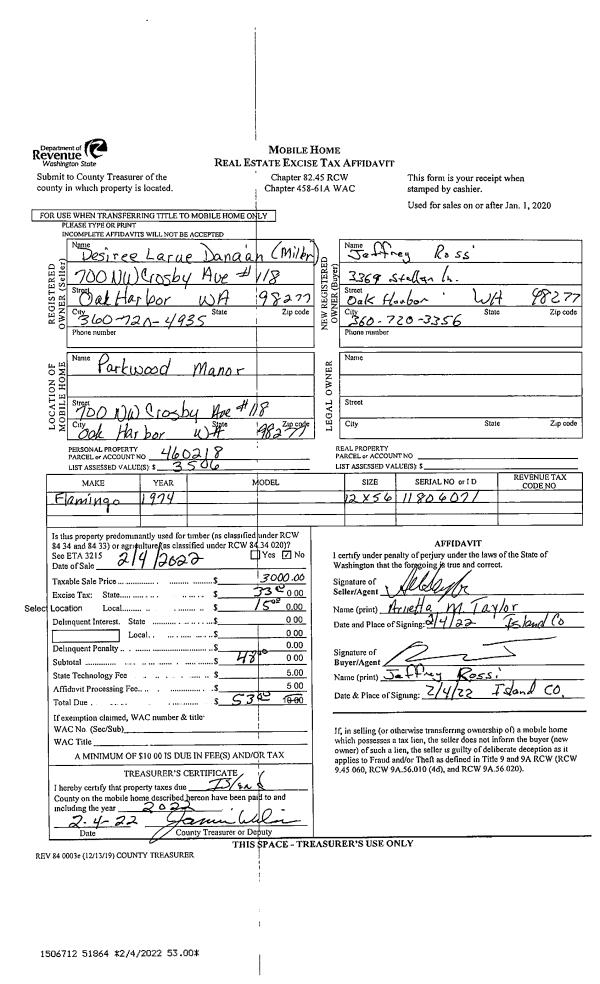 Department of
Revenue
Washington State
MOBILE HOME
REAL ESTATE EXCISE TAX AFFIDAVIT
Submit to County Treasurer of the
county in which property is located.
Chapter 82.45 RCW
Chapter 458-61A WAC
This form is your receipt when
stamped by cashier.
Used for sales on or after Jan. 1, 2020
FOR USE WHEN TRANSFERRING TITLE TO MOBILE HOME ONLY
PLEASE TYPE OR PRINT
INCOMPLETE AFFIDAVITS WILL NOT BE ACCEPTED
REGISTERED OWNER (Seller)
Name Desiree Larue Danaan (Miller)
700 NW Crosby Ave #118
Street
Oak Harbor WA 98277
City State Zip code
360-720-4935
Phone number
NEW REGISTERED OWNER (Buyer)
Name Jeffrey Rossi
3369 Stellar Ln.
Street
Oak Harbor WA 98277
City State Zip code
360-720-3356
Phone number
LOCATION OF MOBILE HOME
Name Parkwood Manor
Street 700 NW Crosby Ave #118
City State Zip code
Oak Harbor WA 98277
LEGAL OWNER
Name
Street
City State Zip code
PERSONAL PROPERTY
PARCEL or ACCOUNT NO 460218
LIST ASSESSED VALUE(S) $ 3506
REAL PROPERTY
PARCEL or ACCOUNT NO
LIST ASSESSED VALUE(S) $
MAKE YEAR MODEL SIZE SERIAL NO or I D REVENUE TAX CODE NO
Flamingo 1974 12 X 56 11806071
Is this property predominantly used for timber (as classified under RCW
84 34 and 84 33) or agriculture (as classified under RCW 84.34 020)?
See ETA 3215 Yes ☑ No
Date of Sale 2/4/2022
Taxable Sale Price $ 3000.00
Excise Tax: State $ 33.00 0 00
Select Location Local $ 15.00 0.00
Delinquent Interest. State $ 0 00
Local $ 0.00
Delinquent Penalty $ 0.00
Subtotal $ 48.00 0 00
State Technology Fee $ 5.00
Affidavit Processing Fee $ 5 00
Total Due $ 53.00 10.00
If exemption claimed, WAC number & title
WAC No. (Sec/Sub)
WAC Title
A MINIMUM OF $10 00 IS DUE IN FEE(S) AND/OR TAX
AFFIDAVIT
I certify under penalty of perjury under the laws of the State of
Washington that the foregoing is true and correct.
Signature of
Seller/Agent
Name (print) Arietta M. Taylor
Date and Place of Signing: 2/4/22 Island Co
Signature of
Buyer/Agent
Name (print) Jeffrey Rossi
Date & Place of Signing: 2/4/22 Island CO.
If, in selling (or otherwise transferring ownership of) a mobile home
which possesses a tax lien, the seller does not inform the buyer (new
owner) of such a lien, the seller is guilty of deliberate deception as it
applies to Fraud and/or Theft as defined in Title 9 and 9A RCW (RCW
9.45 060, RCW 9A.56.010 (4d), and RCW 9A.56 020).
TREASURER'S CERTIFICATE
I hereby certify that property taxes due Island
County on the mobile home described hereon have been paid to and
including the year 2022
2-4-22
Date County Treasurer or Deputy
THIS SPACE - TREASURER'S USE ONLY
REV 84 0003e (12/13/19) COUNTY TREASURER
1506712 51864 *2/4/2022 53.00*